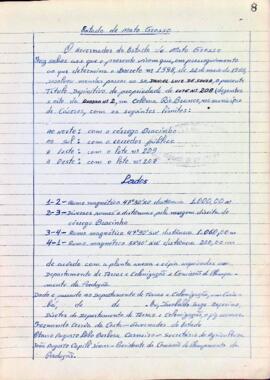 8
Estado de Mato Grosso
O Governador do Estado de Mato Grosso
Faz saber aos que o presente virem que, em prosseguimento
ao que determina o Decreto nº 1598, de 22 de maio de 1953,
mandou passar ao sr. Daniel Luiz de Souza, o presente
Título Definitivo de propriedade do Lote nº 208 (duzentos
e oito) da Quadra nº 2, na Colônia Rio Branco, no município
de Cáceres, com os seguintes limites:
ao norte: com o córrego Bracinho
ao sul: com o corredor público
a Leste: com o lote nº 209
a Oeste: com o lote nº 207
Lados
1-2- Rumo magnético distância 1.000,00 m
2-3- Diversos rumos e distâncias pela margem direita do
córrego Bracinho
3-4- Rumo magnético distância 1.060,00 m
4-1- Rumo magnético distância 250,00 m
de acordo com a planta anexa e cópia arquivada no
Departamento de Terras e Colonização e Comissão de Planeja-
mento da Produção.
Dado e passado no Departamento de Terras e Colonização, em Cuia-
bá,
Diretor do Departamento de Terras e Colonização,
Fernando Corrêa da Costa - Governador do Estado
Secretário de Agricultura
João Augusto Capilé Júnior - Presidente da Comissão de Planejamento da
Produção.